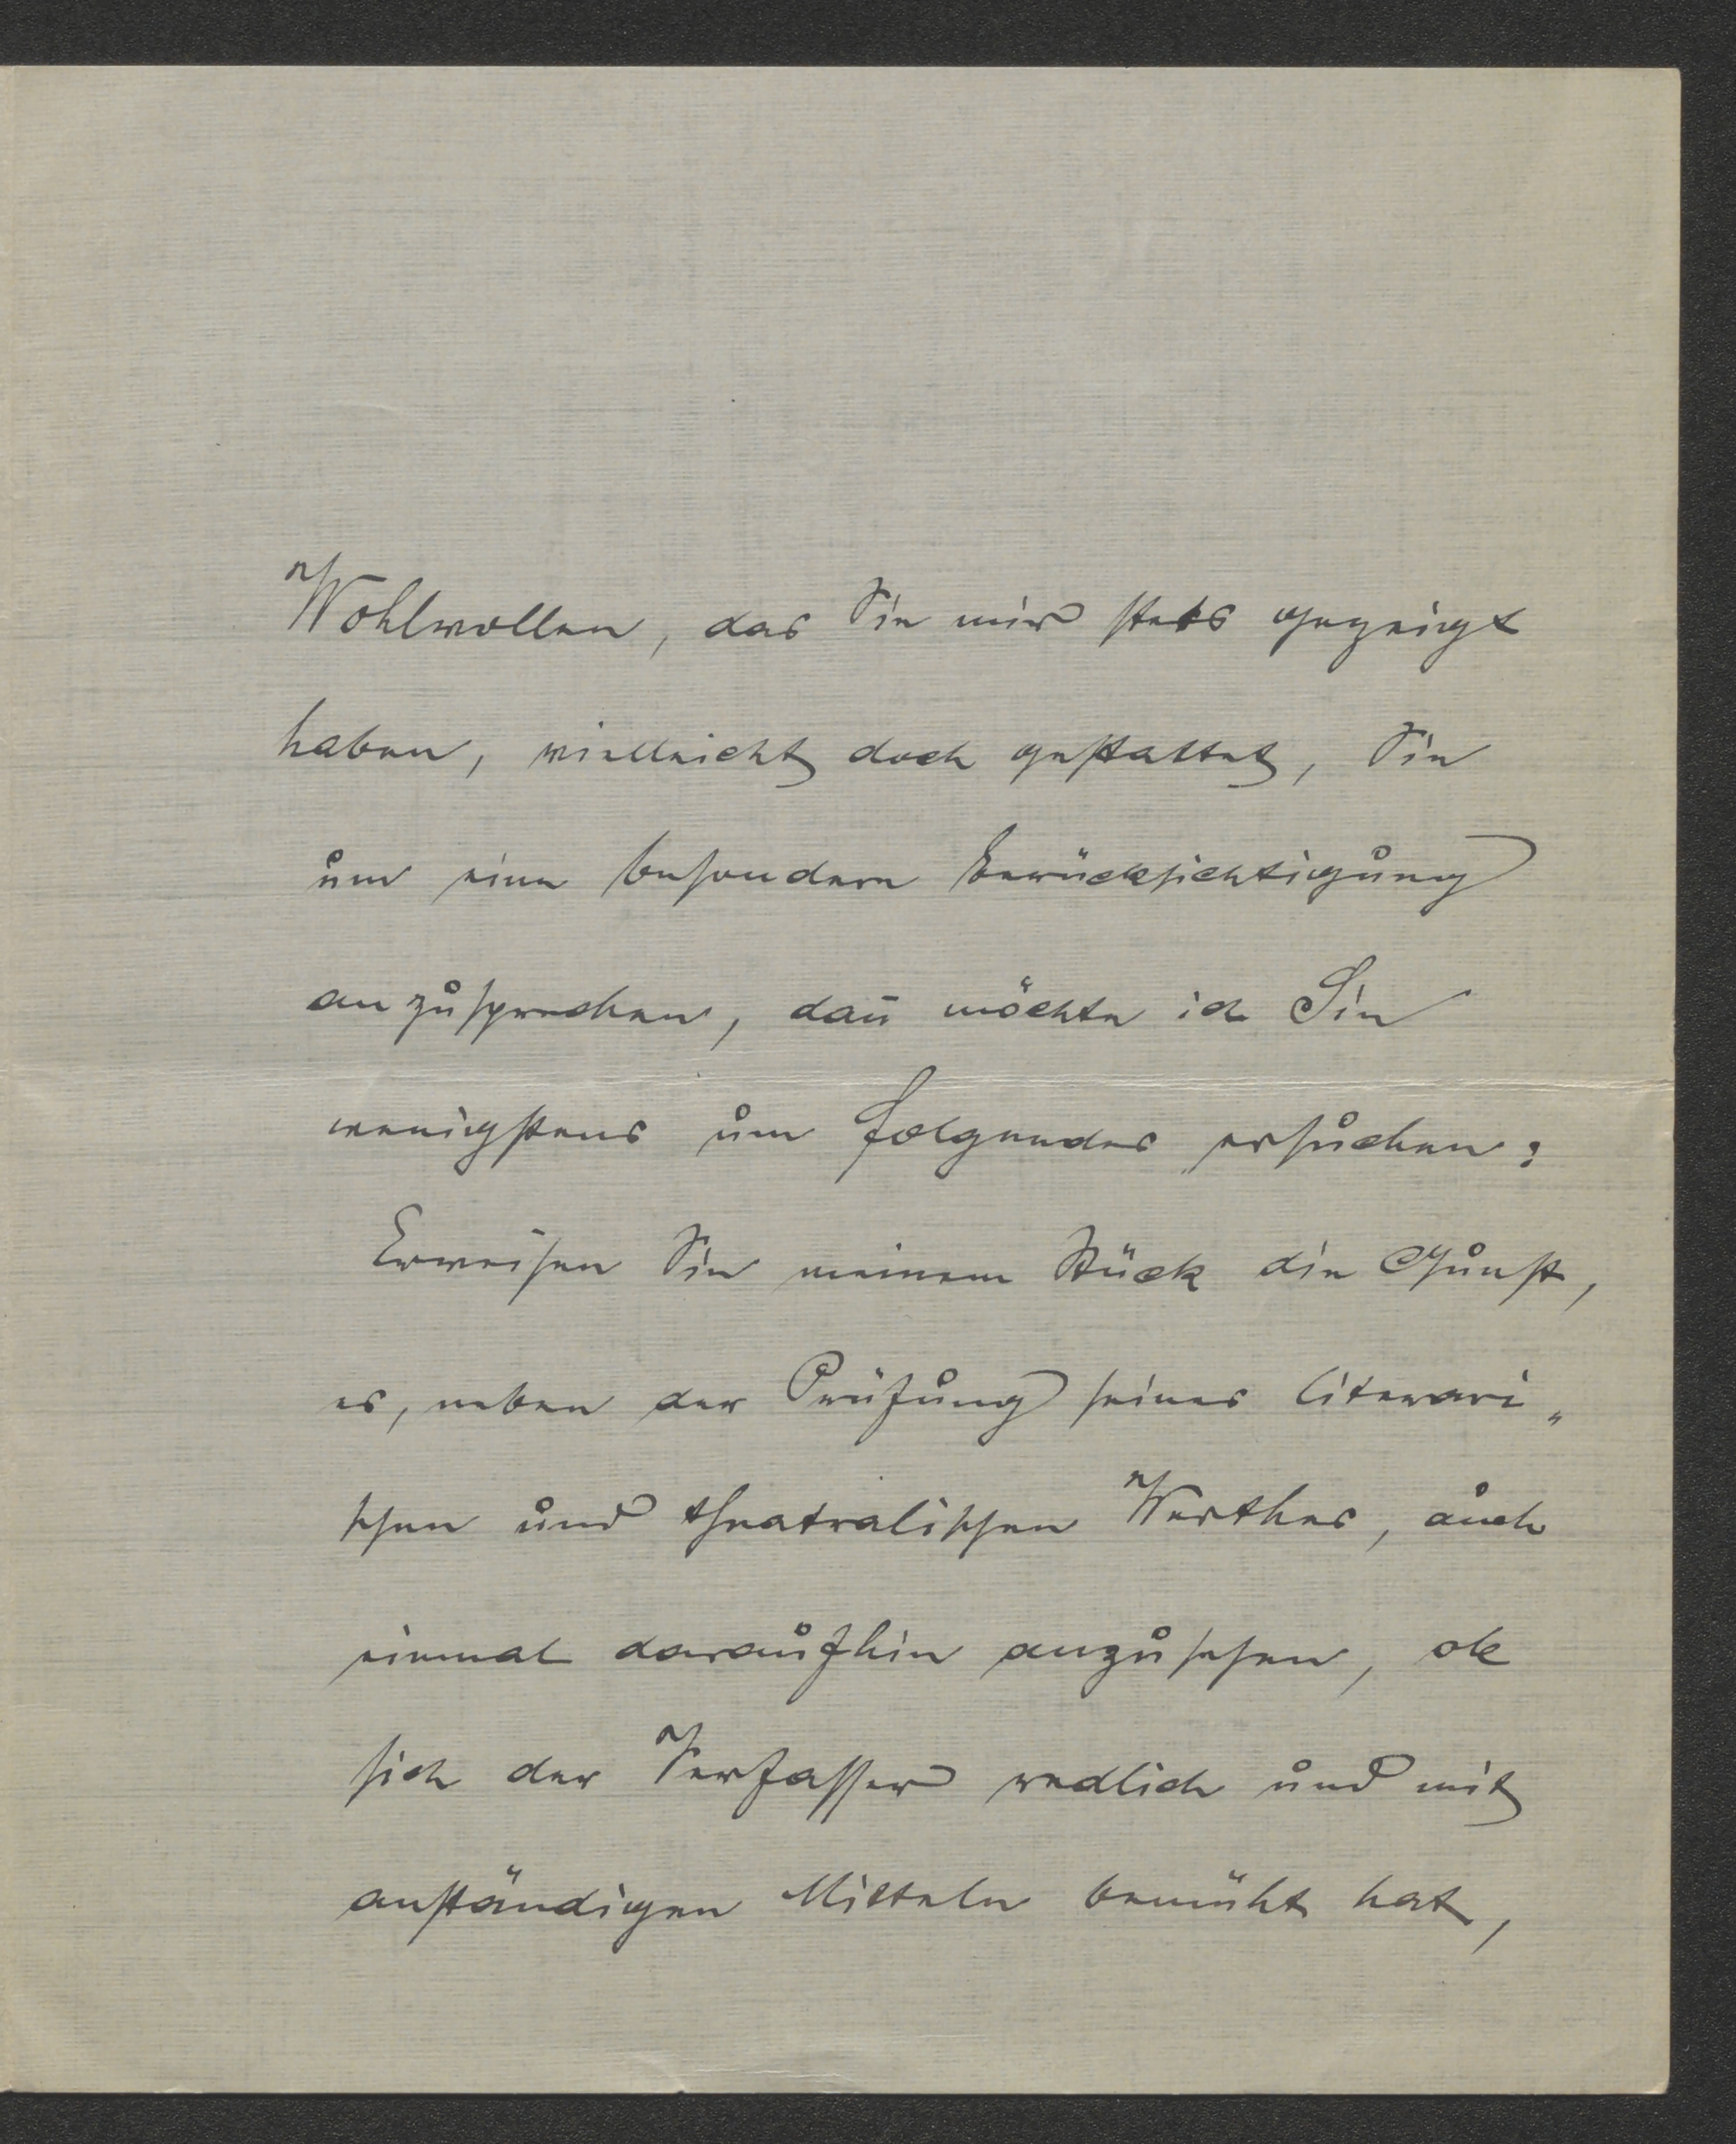 Wohlwollen, das Sie mir stets gezeigt
haben, vielleicht doch gestattet, Sie
um eine besondere Berücksichtigung
anzusprechen, dañ möchte ich Sie
wenigstens um folgendes ersuchen:
Erweisen Sie meinem Stück die Gunst,
es, neben der Prüfung seines literari„
schen und theatralischen Werthes, auch
einmal daraufhin anzusehen, ob
sich der Verfasser redlich und mit
anständigen Mitteln bemüht hat,